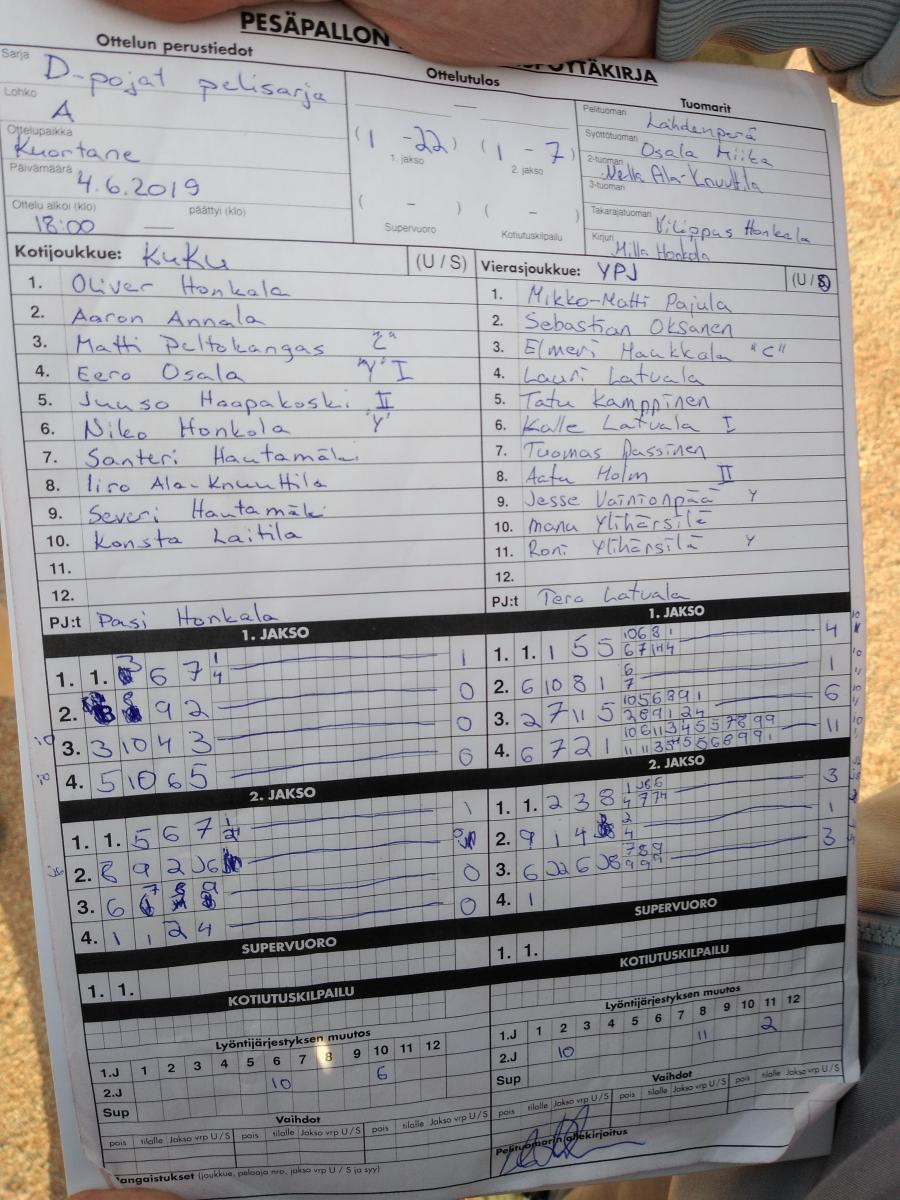 PESÄPALLON
PÖYTÄKIRJA
Ottelun perustiedot
Sarja D-pojat pelisarja
Lohko A
Ottelupaikka
Kuortane
Päivämäärä 4.6.2019
Ottelu alkoi (klo) päättyi (klo)
18:00 —
Ottelutulos
—
( 1 - 22 ) ( 1 - 7 )
1. jakso 2. jakso
( - ) ( - )
Supervuoro Kotiutuskilpailu
Tuomarit
Pelituomari Lahdenperä
Syöttötuomari Osala Miika
2-tuomari Nella Ala-Knuuttila
3-tuomari
Takarajatuomari Vilippus Honkala
Kirjuri Milla Honkola
Kotijoukkue: KuKu (U / S)
1. Oliver Honkala
2. Aaron Annala
3. Matti Peltokangas
4. Eero Osala "Y" I
5. Juuso Haapakoski II
6. Niko Honkola Y
7. Santeri Hautamäki
8. Iiro Ala-Knuuttila
9. Severi Hautamäki
10. Konsta Laitila
11.
12.
PJ:t Pasi Honkala
Vierasjoukkue: YPJ (U / S)
1. Mikko-Matti Pajula
2. Sebastian Oksanen
3. Elmeri Haukkala "C"
4. Lauri Latvala
5. Tatu Kamppinen
6. Kalle Latvala I
7. Tuomas Passinen
8. Aatu Holm II
9. Jesse Vainionpää Y
10. Manu Ylihärsilä
11. Roni Ylihärsilä Y
12.
PJ:t Tero Latvala
1. JAKSO
1. 1. 3 6 7 1 4 1
2. 8 9 2 0
3. 3 10 4 3 0
4. 5 10 6 5 0
2. JAKSO
1. 1. 5 6 7 1
2. 8 9 2 J6
3. 6 7 8 9 0
4. 1 1 2 4 0
SUPERVUORO
1. 1.
KOTIUTUSKILPAILU
Lyöntijärjestyksen muutos
1.J 1 2 3 4 5 6 7 8 9 10 11 12
2.J 10 6
Sup
Vaihdot
pois tilalle Jakso vrp U / S pois tilalle Jakso vrp U / S pois tilalle Jakso vrp U / S
Rangaistukset (joukkue, pelaaja nro, jakso vrp U / S ja syy)
1. JAKSO
1. 1. 1 5 5 10 6 8 1 6 7 11 4 4
2. 6 10 8 1 6 7 1
3. 2 7 11 5 10 5 6 8 9 1 2 8 9 1 2 4 6
4. 6 7 2 1 11
2. JAKSO
1. 1. 2 3 8 3
2. 9 1 4 2 4 1
3. 6 J2 6 J8 7 8 9 9 9 9 3
4. 1
SUPERVUORO
1. 1.
KOTIUTUSKILPAILU
Lyöntijärjestyksen muutos
1.J 1 2 3 4 5 6 7 8 9 10 11 12
2.J 10 11 2
Sup
Vaihdot
pois tilalle Jakso vrp U / S pois tilalle Jakso vrp U / S pois tilalle Jakso vrp U / S
Pelituomarin allekirjoitus